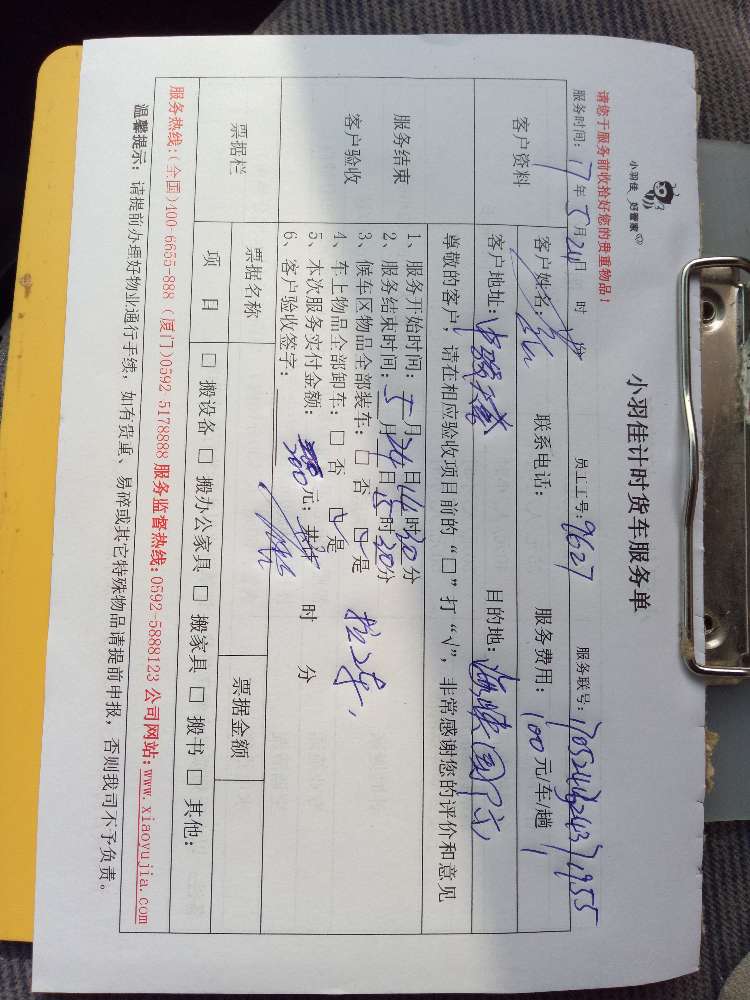 小羽佳 好管家
小羽佳计时货车服务单
请您于服务前收拾好您的贵重物品！
服务时间：17年5月24日 时 分 员工工号：9627 服务联号：
客户资料
客户姓名： 联系电话： 服务费用：100元/车/趟
客户地址： 目的地：
尊敬的客户，请在相应验收项目前的“□”打“√”，非常感谢您的评价和意见
服务结束
客户验收
1、服务开始时间：5月24日14时30分
2、服务结束时间：月 日15时30分
3、候车区物品全部装车：□ 否 □ 是
4、车上物品全部卸车：□ 否 □ 是
5、本次服务实付金额：200元； 时 分
6、客户验收签字：
票据栏
票据名称 票据金额
项 目 □ 搬设备 □ 搬办公家具 □ 搬家具 □ 搬书 □ 其他：
服务热线：(全国)400-6655-888 (厦门)0592-5178888 服务监督热线：0592-5888123 公司网站：www.xiaoyujia.com
温馨提示：请提前办理好物业通行手续，如有贵重、易碎或其它特殊物品请提前申报，否则我司不予负责。